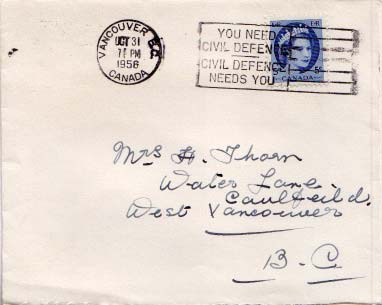 VANCOUVER B.C.
OCT 31
PM
1956
CANADA
YOU NEED
CIVIL DEFENCE
CIVIL DEFENCE
NEEDS YOU
CANADA
Mrs H. Thorn
Water Lane.
Caulfeild.
West Vancouver
B-C